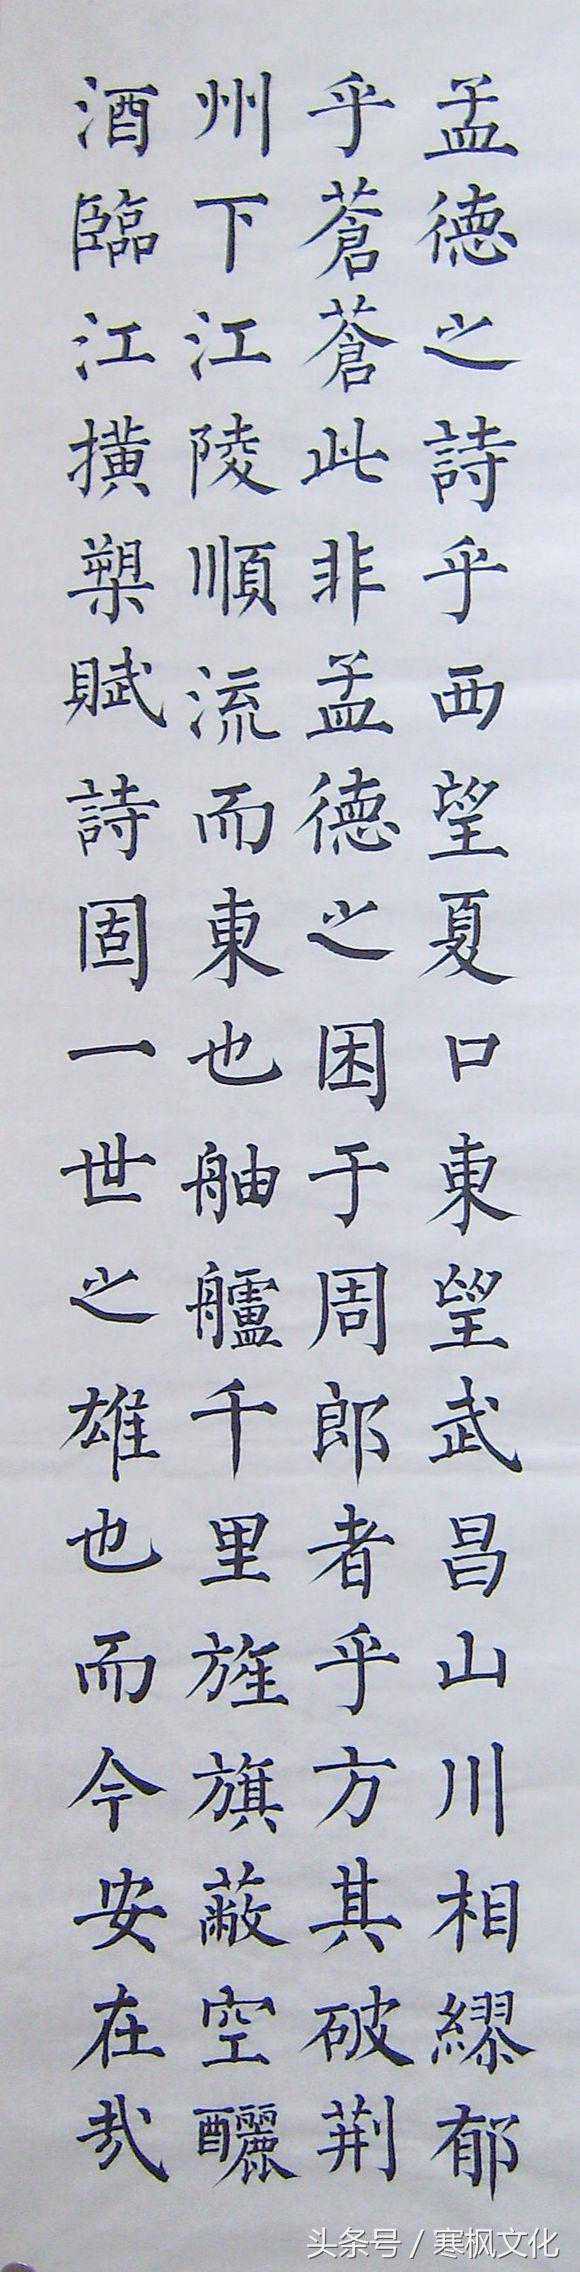 孟德之詩乎西望夏口東望武昌山川相繆郁
乎蒼蒼此非孟德之困于周郎者乎方其破荆
州下江陵順流而東也舳艫千里旌旗蔽空釃
酒臨江横槊賦詩固一世之雄也而今安在哉
头条号/寒枫文化